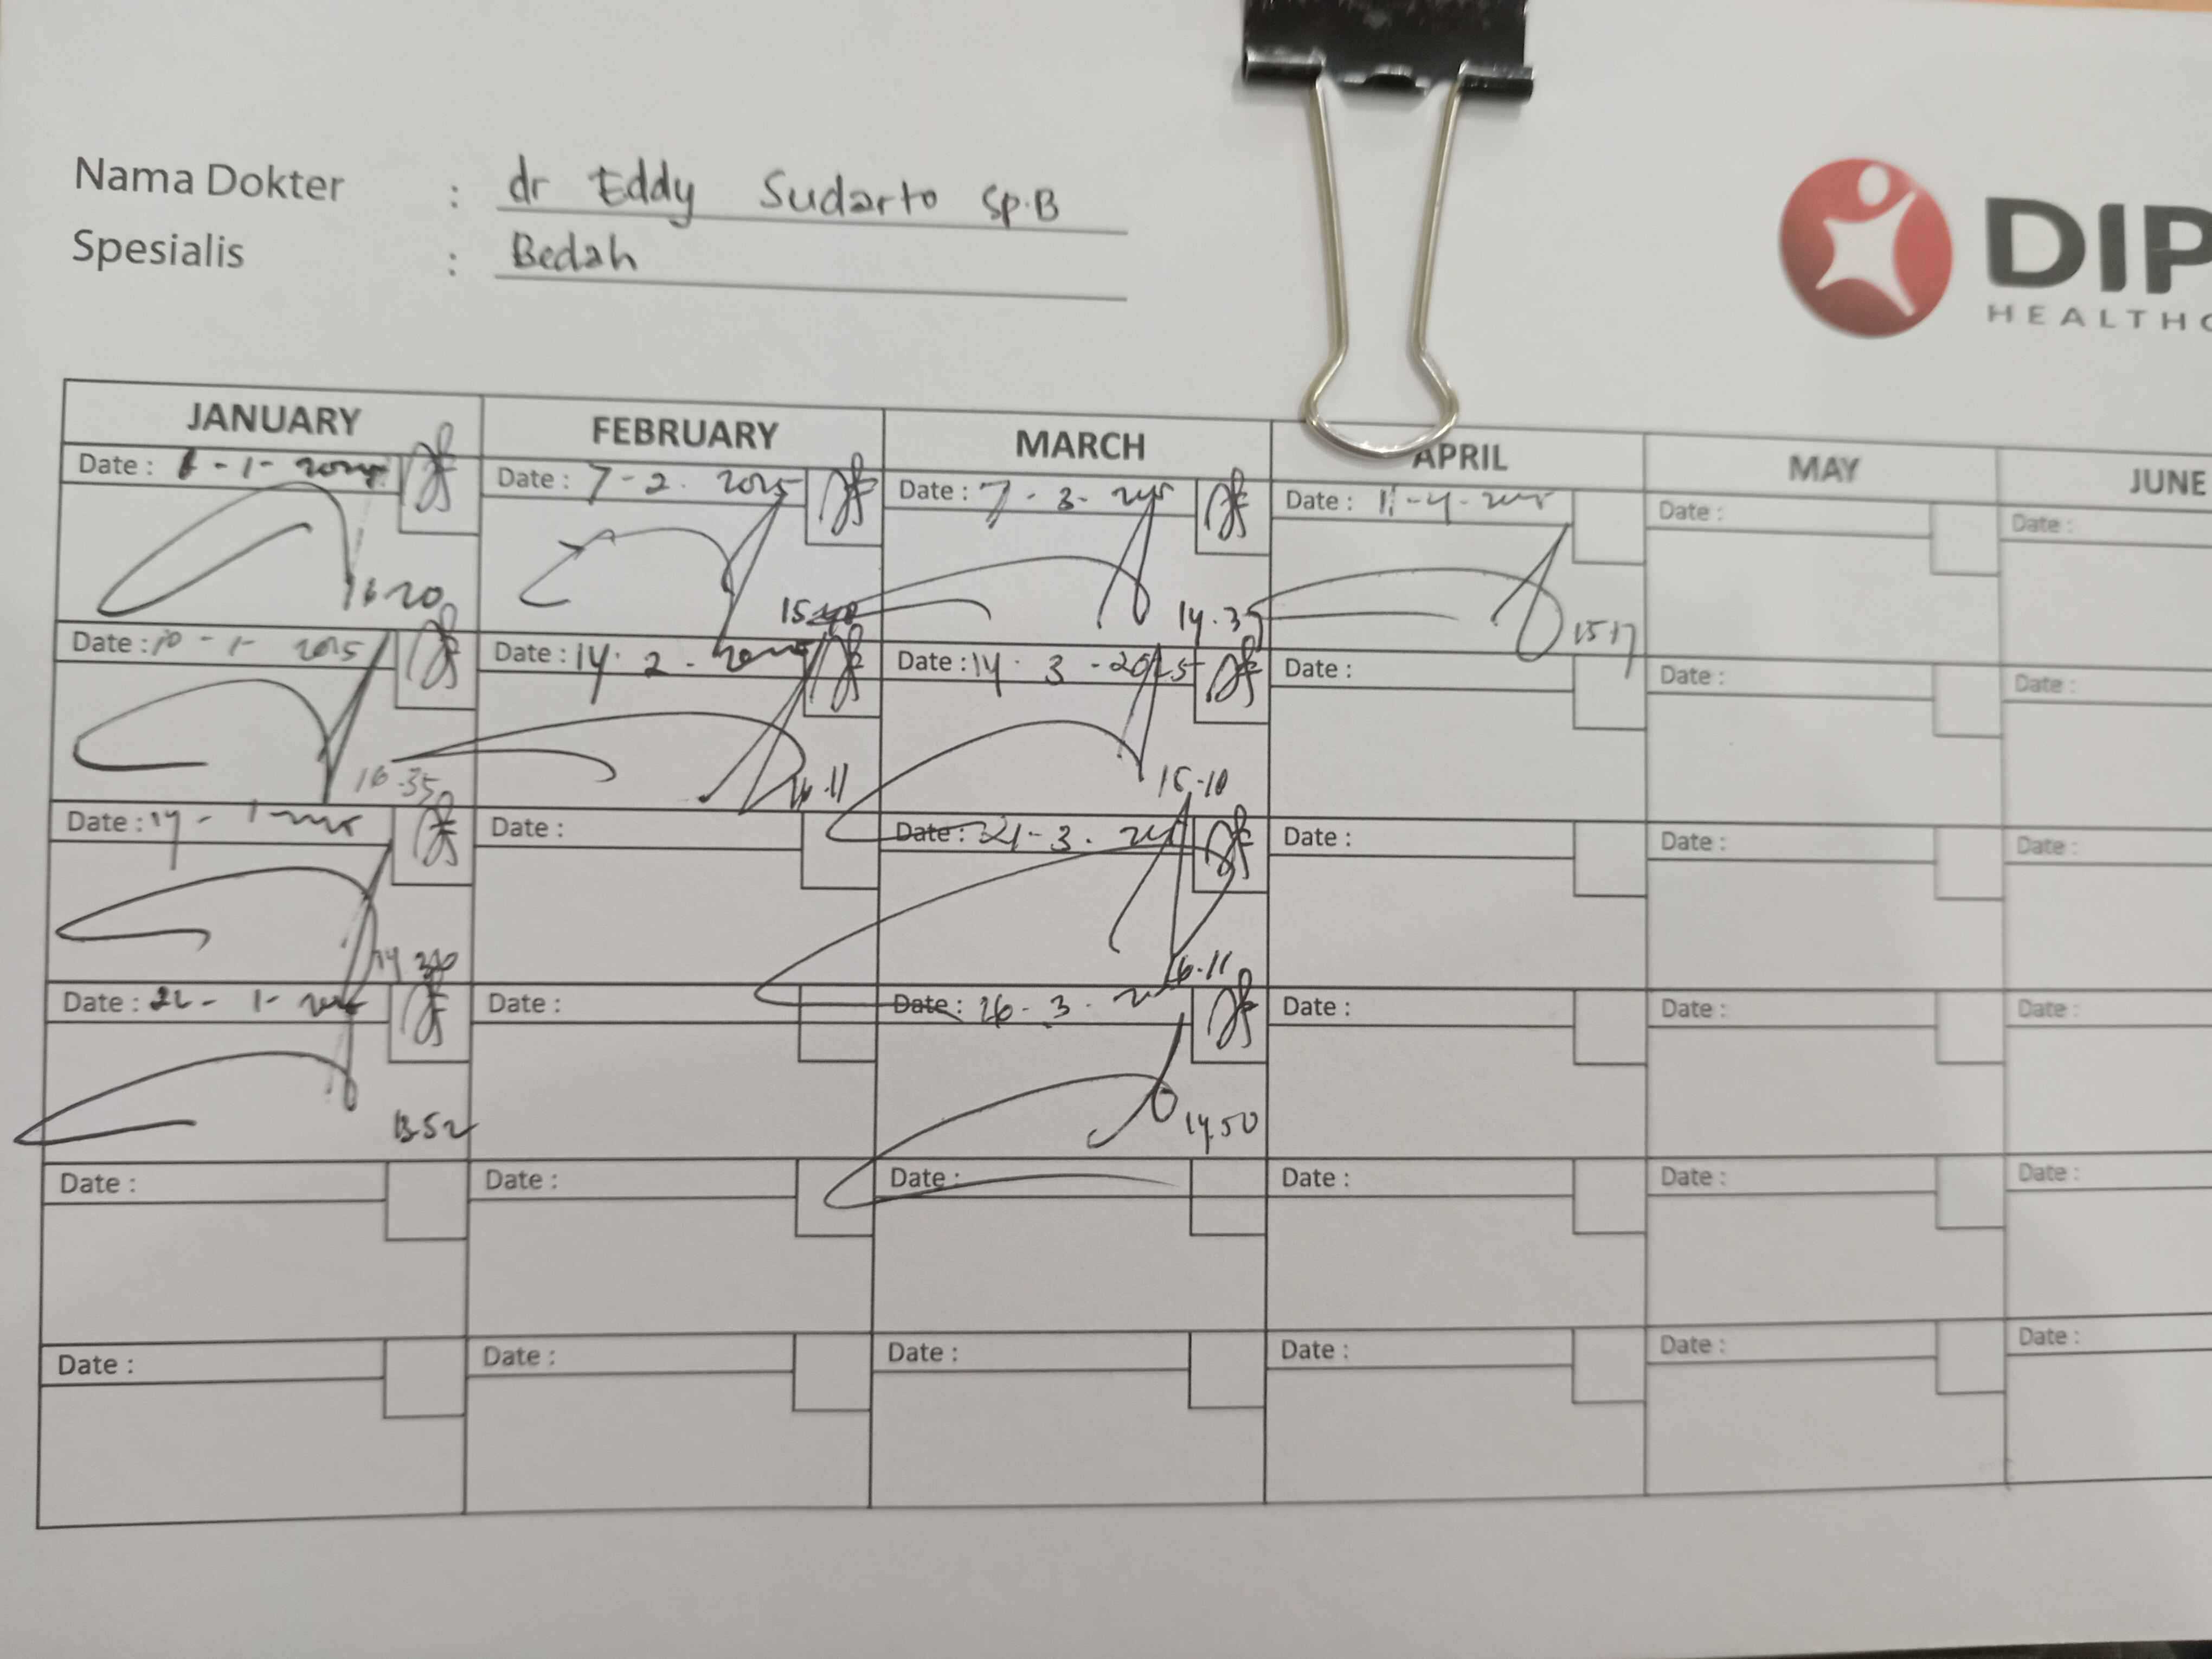 Nama Dokter : dr Eddy Sudarto Sp.B
Spesialis : Bedah
DIP
HEALTHC
JANUARY FEBRUARY MARCH APRIL MAY JUNE
Date : - 1 - Date : 7 - 2 . 2025 Date : 7 - 3 - Date : 11 - 4 - Date : Date :
16 20 15 14.35 15 17
Date : 10 - 1 - 2015 Date : 14 . 2 - Date : 14 . 3 - 2025 Date : Date : Date :
16 .35 16.11 15.10
Date : 14 - 1 Date : Date : 21 - 3 . Date : Date : Date :
14 16.11
Date : 22 - 1 - Date : Date : 26 - 3 . Date : Date : Date :
13 52 14 50
Date : Date : Date : Date : Date : Date :
Date : Date : Date : Date : Date : Date :